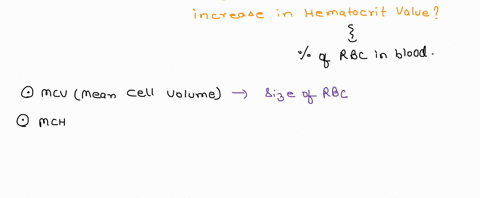 increase in Hematocrit Value?
% of RBC in blood.
⊙ MCV (Mean Cell Volume) → Size of RBC
⊙ MCH